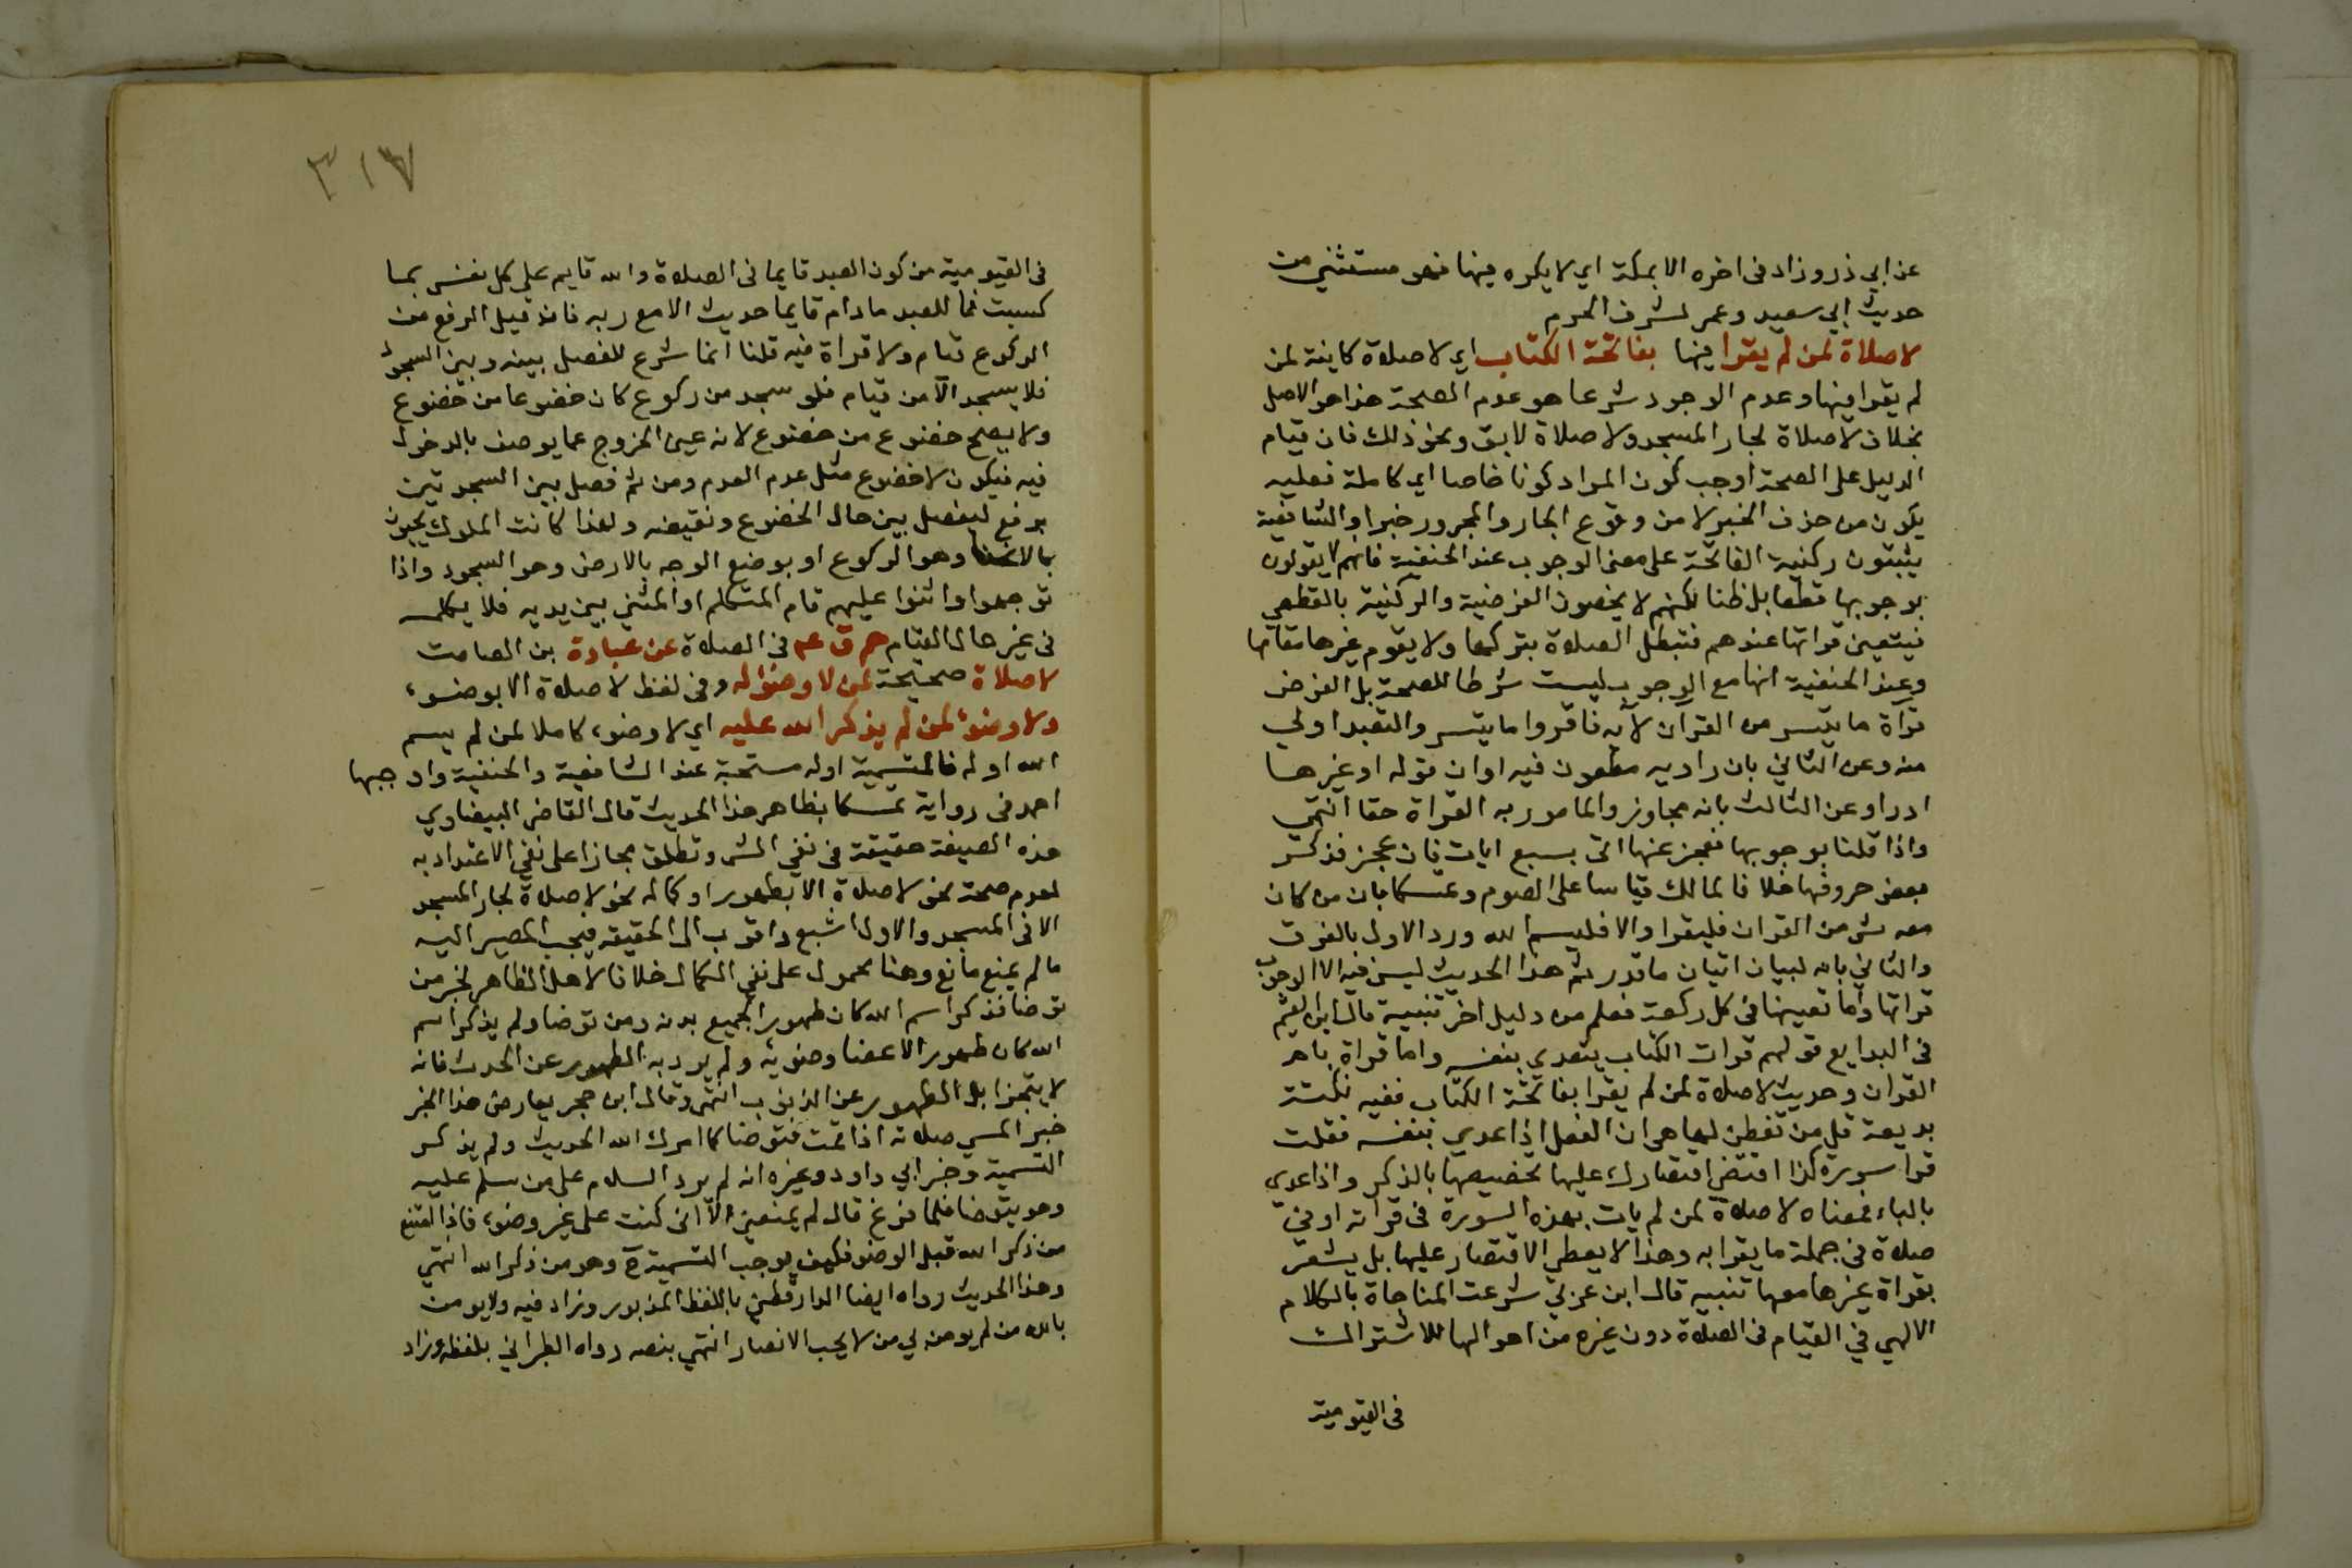 عن ابي ذر وزاد في اخره الا بمكة اي لا يكره فيها فهو مستثني من
حديث ابي سعيد وعمر لشرف الحرم
لا صلاة لمن لم يقرا فيها بفاتحة الكتاب اي لا صلاة كاينة لمن
لم يقرا فيها وعدم الوجود شرعا هو عدم الصحة هذا هو الاصل
بخلاف لا صلاة لجار المسجد ولا صلاة لابق ونحو ذلك فان قيام
الدليل على الصحة اوجب كون المراد كونا خاصا اي كاملة فعليه
يكون من حذف الخبر لا من وقوع الجار والمجرور خبرا والشافعية
يثبتون ركنية الفاتحة على معنى الوجوب عند الحنفية فانهم لا يقولون
بوجوبها قطعا بل ظنا لكنهم لا يخصون الفرضية والركنية بالقطعي
فيتعين قراتها عندهم فتبطل الصلاة بتركها ولا يقوم غيرها مقامها
وعند الحنفية انها مع الوجوب ليست شرطا للصحة بل الفرض
قراة ما تيسر من القران لاية فاقروا ما تيسر والتقيد اولى
منه وعن الثاني بان راويه مطعون فيه او ان قوله او غيرها
ادراو عن الثالث بانه مجاوز والمامور به القراة حقا انتهى
واذا قلنا بوجوبها فعجز عنها اتى بسبع ايات فان عجز فذكر
بعض حروفها خلافا لمالك قياسا على الصوم وتمسكا بان من كان
معه شي من القران فليقرا والا فليسم الله ورد الاول بالفرق
والثاني بانه لبيان اتيان ما قدر ثم هذا الحديث ليس فيه الا الوجوب
قراتها واما تعينها في كل ركعة فعلم من دليل اخر تنبيه قال ابن القيم
في البدايع قولهم قرات الكتاب يتعدي بنفسه واما قراة بام
القران وحديث لا صلاة لمن لم يقرا بفاتحة الكتاب ففيه نكتة
بديعة قل من تفطن لها هي ان الفعل اذا عدي بنفسه فقلت
قرا سورة كذا اقتضى اقتصارك عليها لتخصيصها بالذكر واذا عدي
بالباء فمعناه لا صلاة لمن لم يات بهذه السورة في قراته او في
صلاة في جملة ما يقرا به وهذا لا يعطي الاقتصار عليها بل يشعر
بقراة غيرها معها تنبيه قال ابن عربي شرعت المناجاة بالكلام
الالهي في القيام في الصلاة دون غيره من احوالها للاشتراك
في القيومية
٣١٧
في القيومية من كون العبد قايما في الصلاة والله قايم على كل نفس بما
كسبت فما للعبد ما دام قايما حديث الا مع ربه فان قيل الرفع من
الركوع قيام ولا قراة فيه قلنا انما شرع للفصل بينه وبين السجود
فلا يسجد الا من قيام فلو سجد من ركوع كان خضوعا من خضوع
ولا يصح خضوع من خضوع لانه عين الخروج عما يوصف بالدخول
فيه فيكون لا خضوع مثل عدم العدم ومن ثم فصل بين السجدتين
برفع ليفصل بين حال الخضوع ونقيضه ولهذا كانت الملوك يحيون
بالانحنا وهو الركوع او بوضع الوجه بالارض وهو السجود واذا
توجهوا واثنوا عليهم قام المتكلم او المثني بين يديه فلا يكلمه
في غير حال القيام حم ق عم في الصلاة عن عبادة بن الصامت
لا صلاة صحيحة لمن لا وضو له وفي لفظ لا صلاة الا بوضوء
ولا وضوء لمن لم يذكر الله عليه اي لا وضوء كاملا لمن لم يسم
الله اوله فالتسمية اوله مستحبة عند الشافعية والحنفية واوجبها
احمد في رواية تمسكا بظاهر هذا الحديث قال القاضي البيضاوي
هذه الصيغة حقيقة في نفي الشي وتطلق مجازا على نفي الاعتداد به
لعدم صحة نحو لا صلاة الا بطهور او كماله نحو لا صلاة لجار المسجد
الا في المسجد والاول اشبع واقرب الى الحقيقة فيجب المصير اليه
ما لم يمنع مانع وهنا محمول على نفي الكمال خلافا لاهل الظاهر لخبر من
توضا فذكر اسم الله كان طهورا لجميع بدنه ومن توضا ولم يذكر اسم
الله كان طهورا لاعضا وضويه ولم يرد به الطهور عن الحدث فانه
لا يتجزا بل الطهور عن الذنوب انتهى وقال ابن حجر يعارض هذا الخبر
خبر المسي صلاته اذا قمت فتوضا كما امرك الله الحديث ولم يذكر
التسمية وخبر ابي داود وغيره انه لم يرد السلام على من سلم عليه
وهو يتوضا فلما فرغ قال لم يمنعني الا اني كنت على غير وضوء فاذا امتنع
من ذكر الله قبل الوضو فكيف يوجب التسمية ح وهو من ذكر الله انتهى
وهذا الحديث رواه ايضا الدارقطني باللفظ المزبور وزاد فيه ولا يومن
بالله من لم يومن بي من لا يحب الانصار انتهى بنصه رواه الطبراني بلفظه وزاد